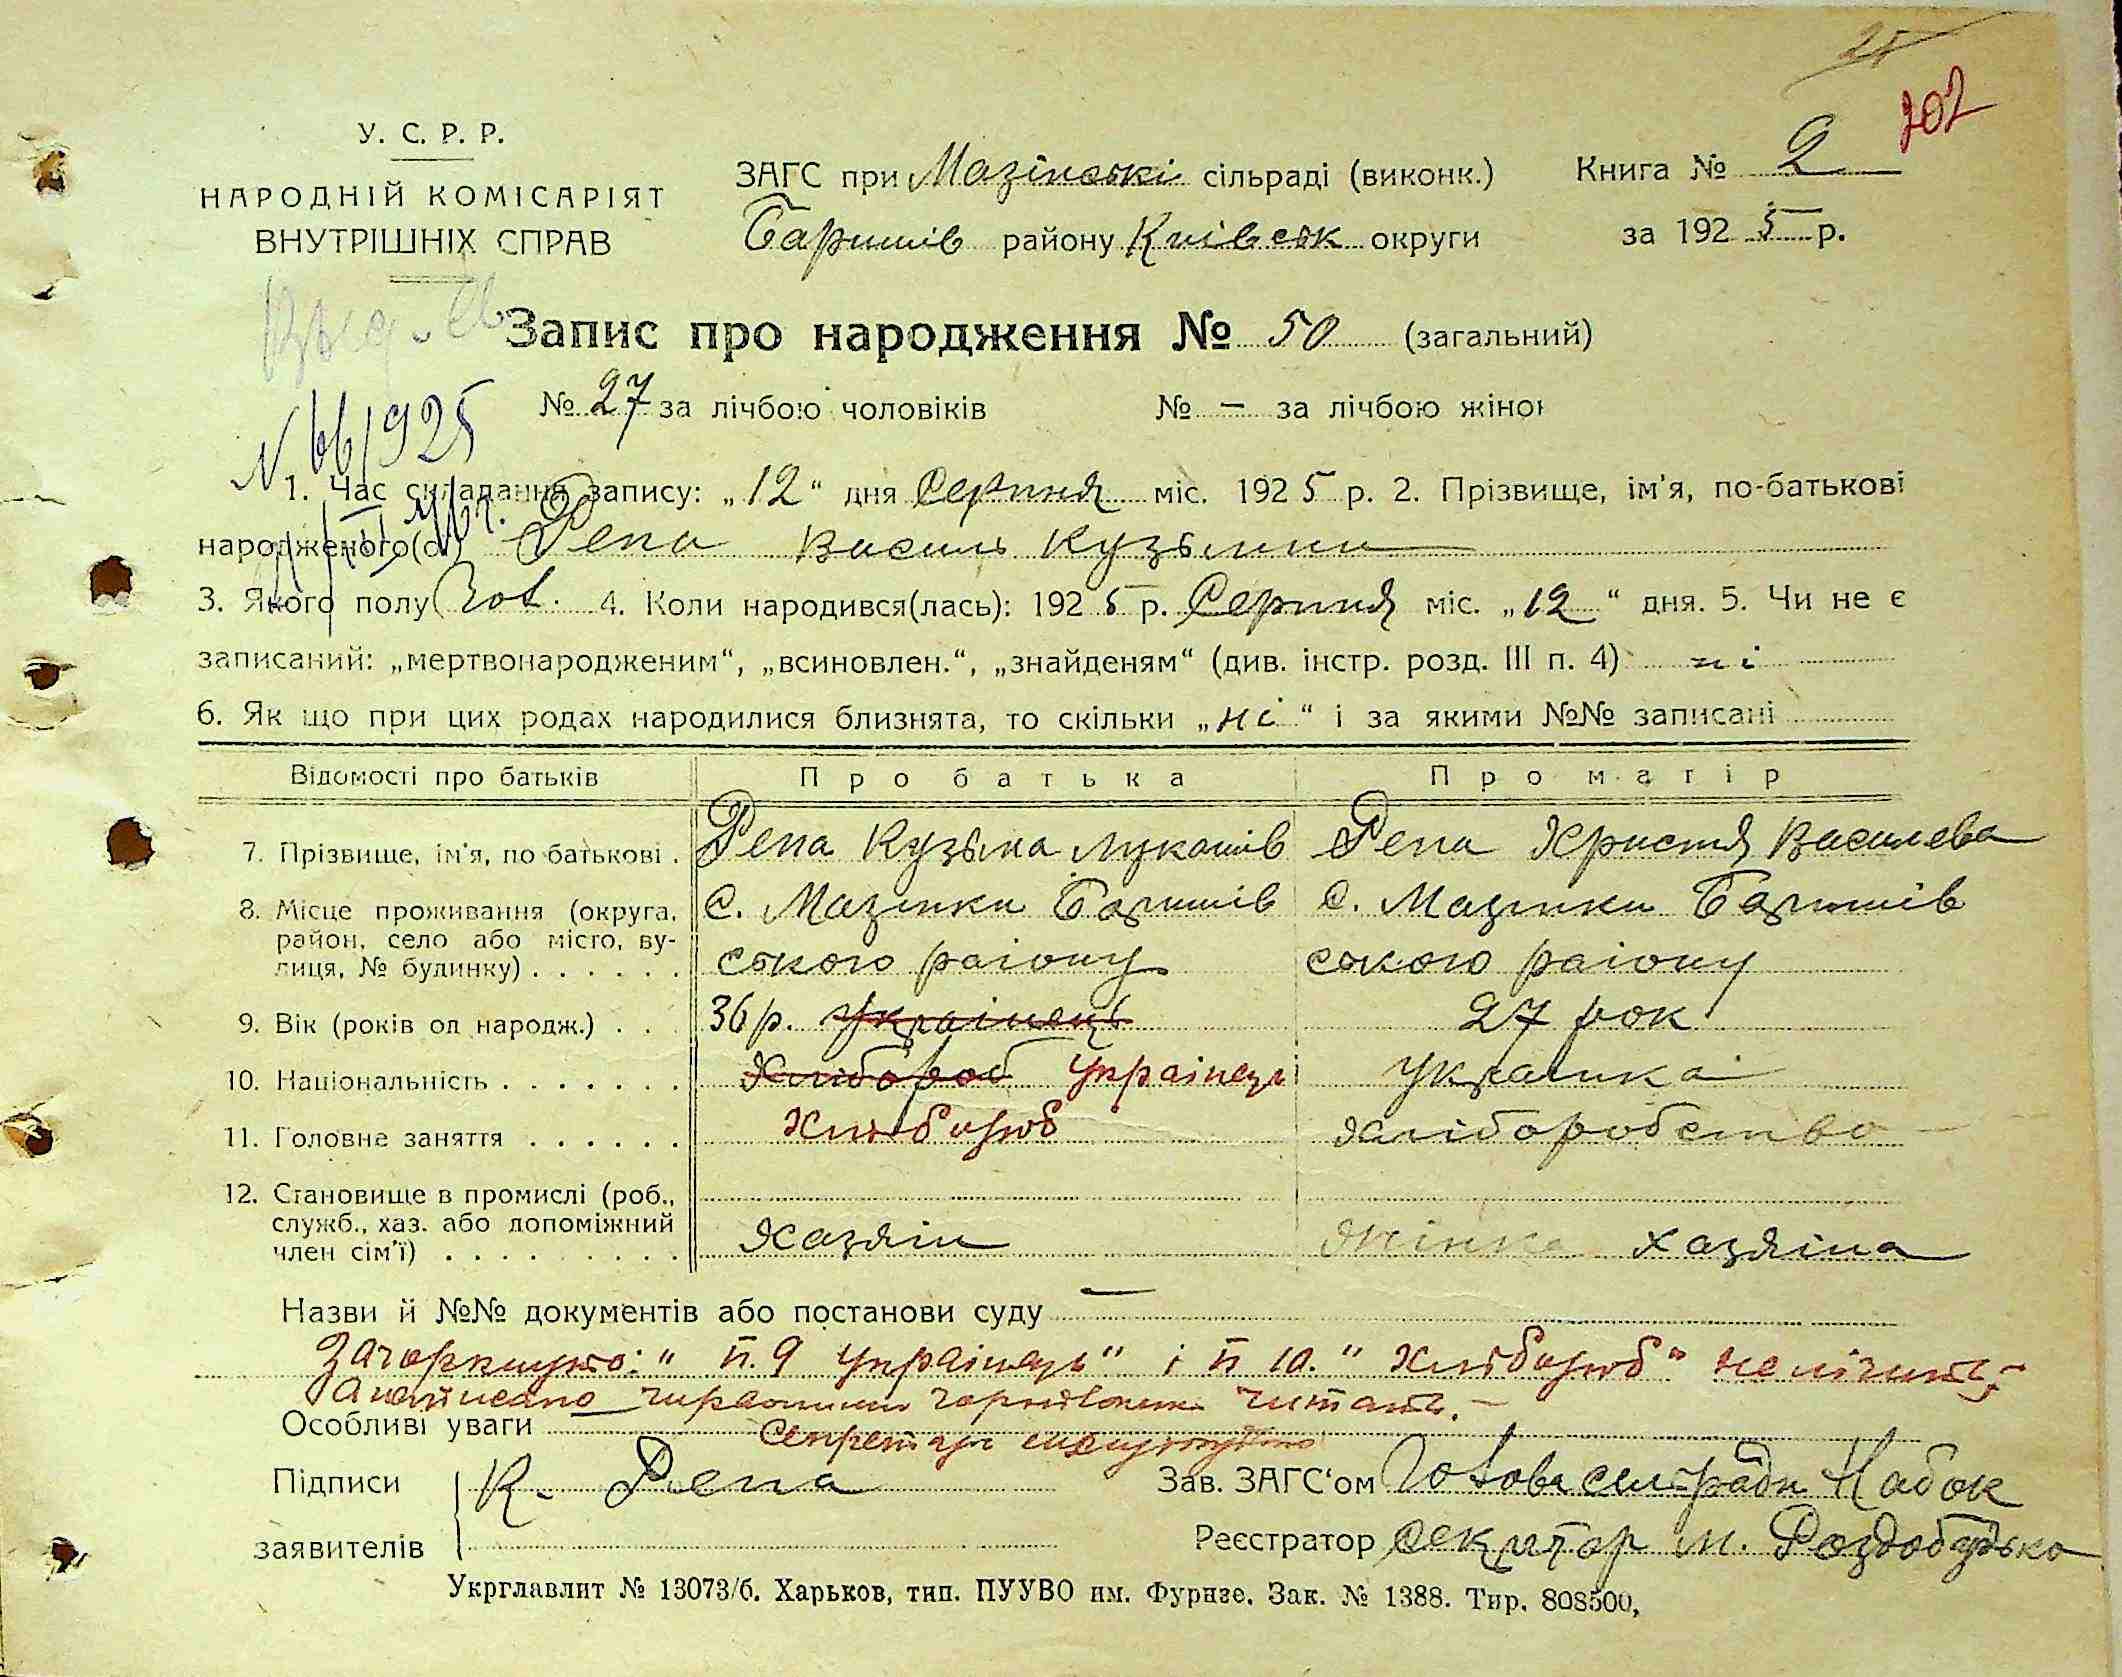 202
У. С. Р. Р.
НАРОДНІЙ КОМІСАРІЯТ
ВНУТРІШНІХ СПРАВ
ЗАГС при Мазінські сільраді (виконк.)
Баришів району Київськ округи
Книга № 2
за 1925 р.
Запис про народження № 50 (загальний)
№ 27 за лічбою чоловіків № – за лічбою жінок
N 66/925
1. Час складання запису: „12“ дня Серпня міс. 1925 р. 2. Прізвище, ім'я, по-батькові
народженого(ої) Репа Василь Кузьмин
3. Якого полу Чов. 4. Коли народився(лась): 1925 р. Серпня міс. „12“ дня. 5. Чи не є
записаний: „мертвонародженим“, „всиновлен.“, „знайденям“ (див. інстр. розд. III п. 4) ні
6. Як що при цих родах народилися близнята, то скільки „ні“ і за якими №№ записані
Відомості про батьків Про батька Про матір
7. Прізвище, ім'я, по батькові . Репа Кузьма Лукашів Репа Христя Василева
8. Місце проживання (округа, район, село або місто, вулиця, № будинку) . . . . . . с. Мазінки Баришів с. Мазінки Баришів
ського раіону ського раіону
9. Вік (років од народж.) . . . 36 р. украінець 27 рок
10. Національність . . . . . . . Хлібороб Украінець Украінка
11. Головне заняття . . . . . . Хлібороб Хліборобство
12. Становище в промислі (роб., служб., хаз. або допоміжний член сім'ї) . . . . . . . . . Хазяін Жінка хазяіна
Назви й №№ документів або постанови суду —
Зачоркнуто: „п. 9 украінець“ і п 10. „Хлібороб“ не лічить,
а написано чирвоними чорнилами читать. –
Особливі уваги
Секретарь
Підписи
заявителів
К. Репа
Зав. ЗАГС'ом Голова сельради Набок
Реєстратор секритар М. Роздобудько
Укрглавлит № 13073/б. Харьков, тип. ПУУВО им. Фрунзе. Зак. № 1388. Тир. 808500,